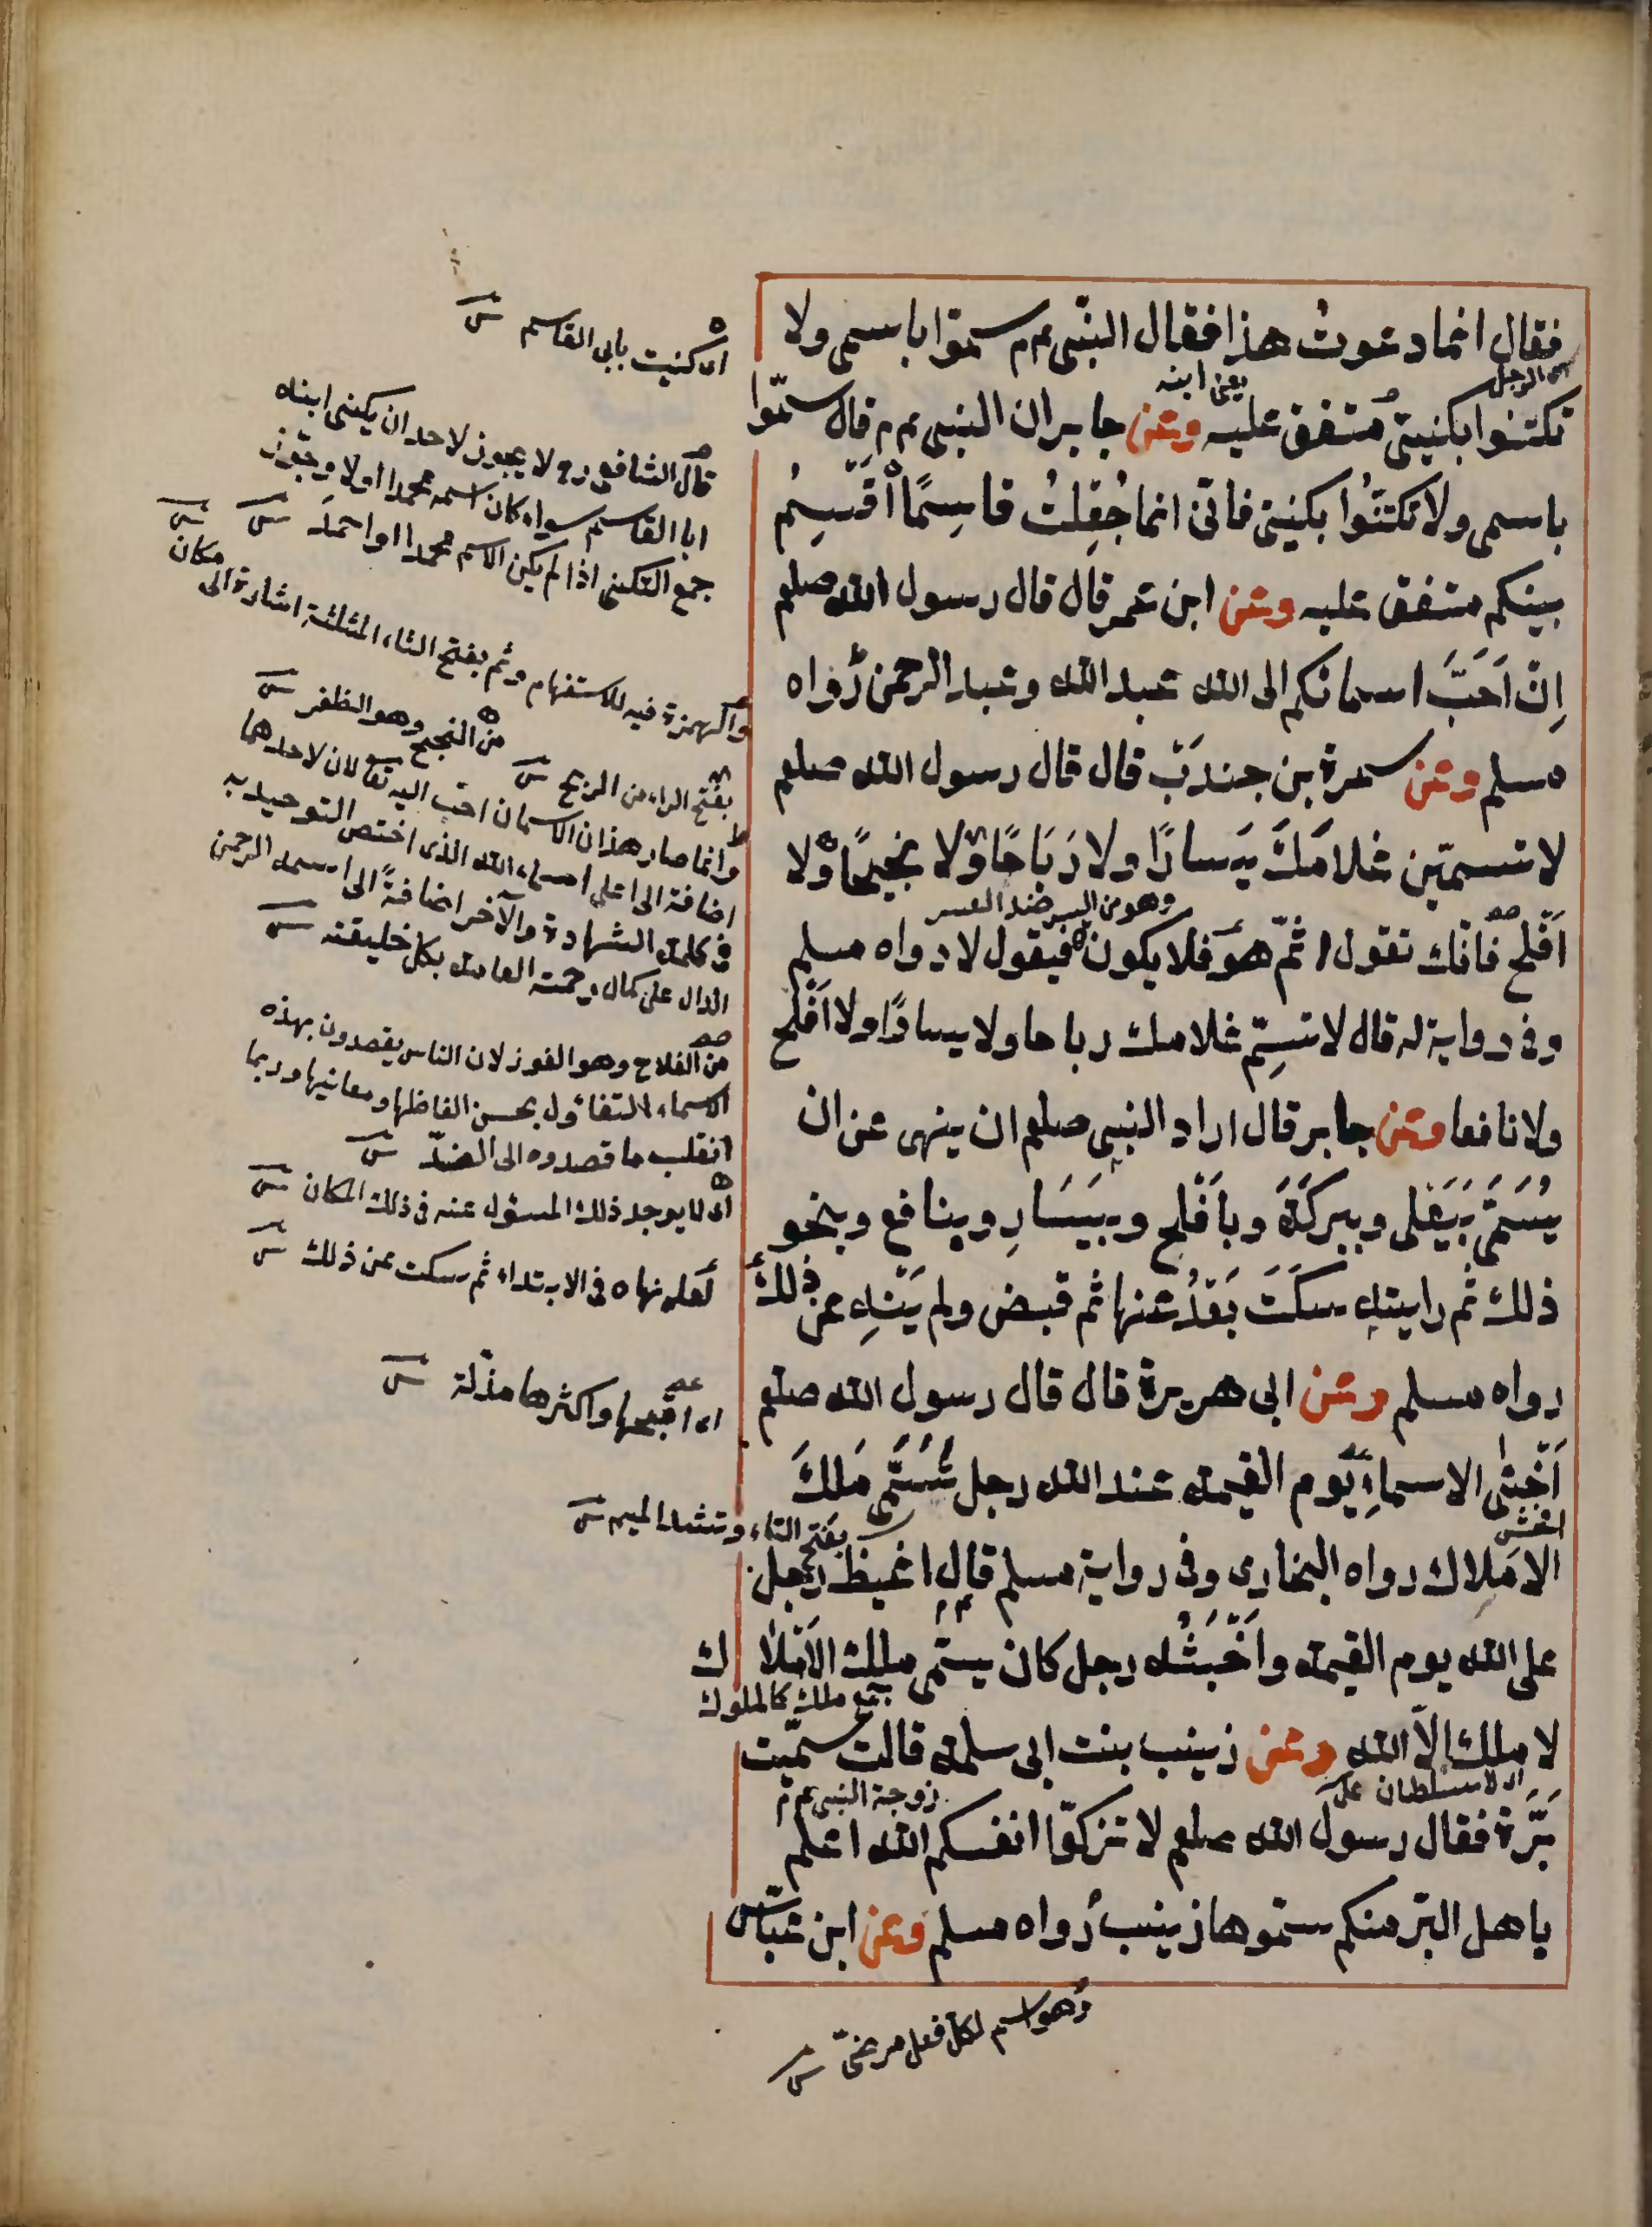 فقال انما دعوتُ هذا فقال النبّى عم م سمّوا باسمى ولا
اى الرجل
يعنى ابنه
تكتنوا بكنيتى مُتفق عليه وعن جابر ان النبى عم م قال سمّوا
باسمى ولا تكتنُوا بكنيتى فانّى انما جُعِلتُ قاسِمًا اُقَسِمُ
بينكم متفق عليه وعن ابن عمر قال قال رسول الله صلعم
اِنّ اَحَبَّ اسمائكم الى الله عبد الله وعبد الرحمن رواه
مسلم وعن سمرة بن جندَبْ قال قال رسول الله صلعم
لا تسميّن غلامَكَ يَسارًا ولا رَبَاحًا ولا نجيحًا ولا
وهو من اليسر ضد العسر
اَفْلح فانّك تقول اثمّ هوَ فلا يكون فيقول لا رواه مسلم
وفى رواية له قال لا تسمِّ غلامك رباحا ولا يسارًا ولا اَفْلح
ولا نافعا وعن جابر قال اراد النبى صلعم ان ينهى عن ان
يُسَمَّى بَيَعْلى وببركَةَ وباَفْلح وبيَسَارِ وبنافع وبنحو
ذلك ثم رايته سكَتَ بَعْدُ عنها ثم قبض ولم يَنْهَ عن ذلك
رواه مسلم وعن ابى هريرة قال قال رسول الله صلعم
اَخْنَى الاسماءِ يَوم القيمة عند الله رجل تُسَمَّى مَلكَ
افحش
بفتح التاء وتشد الميم
الامَلِاك رواه البخارى وفى رواية مسلم قال اغيظ رجل
على الله يوم القيمة واَخْبَثُه رجل كان يسمّى مللك الاَمْلاك
جمع ملك كالملوك
لا ملك الاّ الله وعن زينب بنت ابى سلمة قالت سمّيت
اى لا سلطان
زوجة النبى عم م
بَرَّة فقال رسول الله صلعم لا تزكوّا انفسكم الله اعلم
باهل البّر منكم سمّوها زينب رواه مسلم وعن ابن عبّاس
وهو اسم لكل فعل مرضىّ
اى كنيت بابى القاسم
قال الشافعى رح لا يجوز لاحد ان يكنى ابنه
ابا القاسم سواء كان اسمه محمدا او لا وجوّز
جمع التكنى اذا لم يكن الاسم محمدا او احمدَ
والهمزة فيه للاستفهام وثم بفتح الثاء المثلثة اشارة الى مكان
من النجح وهو الظفر
بفتح الراء من الربح
وانما صار هذان الاسمان احبّ اليه تعا لان لاحدهما
اضافة الى اعلى اسماء الله الذى اختص التوحيد به
فى كلمة الشهادة والآخر اضافةً الى اسمه الرحمن
الدال على كمال رحمته العامة بكل خليقته
من الفلاح وهو الفوز لان الناس يقصدون بهذه
الاسماء التفاؤل بحسن الفاظها ومعانيها وربما
انقلب ما قصدوه الى الضدّ
اى لا يوجد ذلك المسؤل عنه فى ذلك المكان
لعله نهاه فى الابتداء ثم سكت عن ذلك
اى اقبحها واكثرها مذلّة